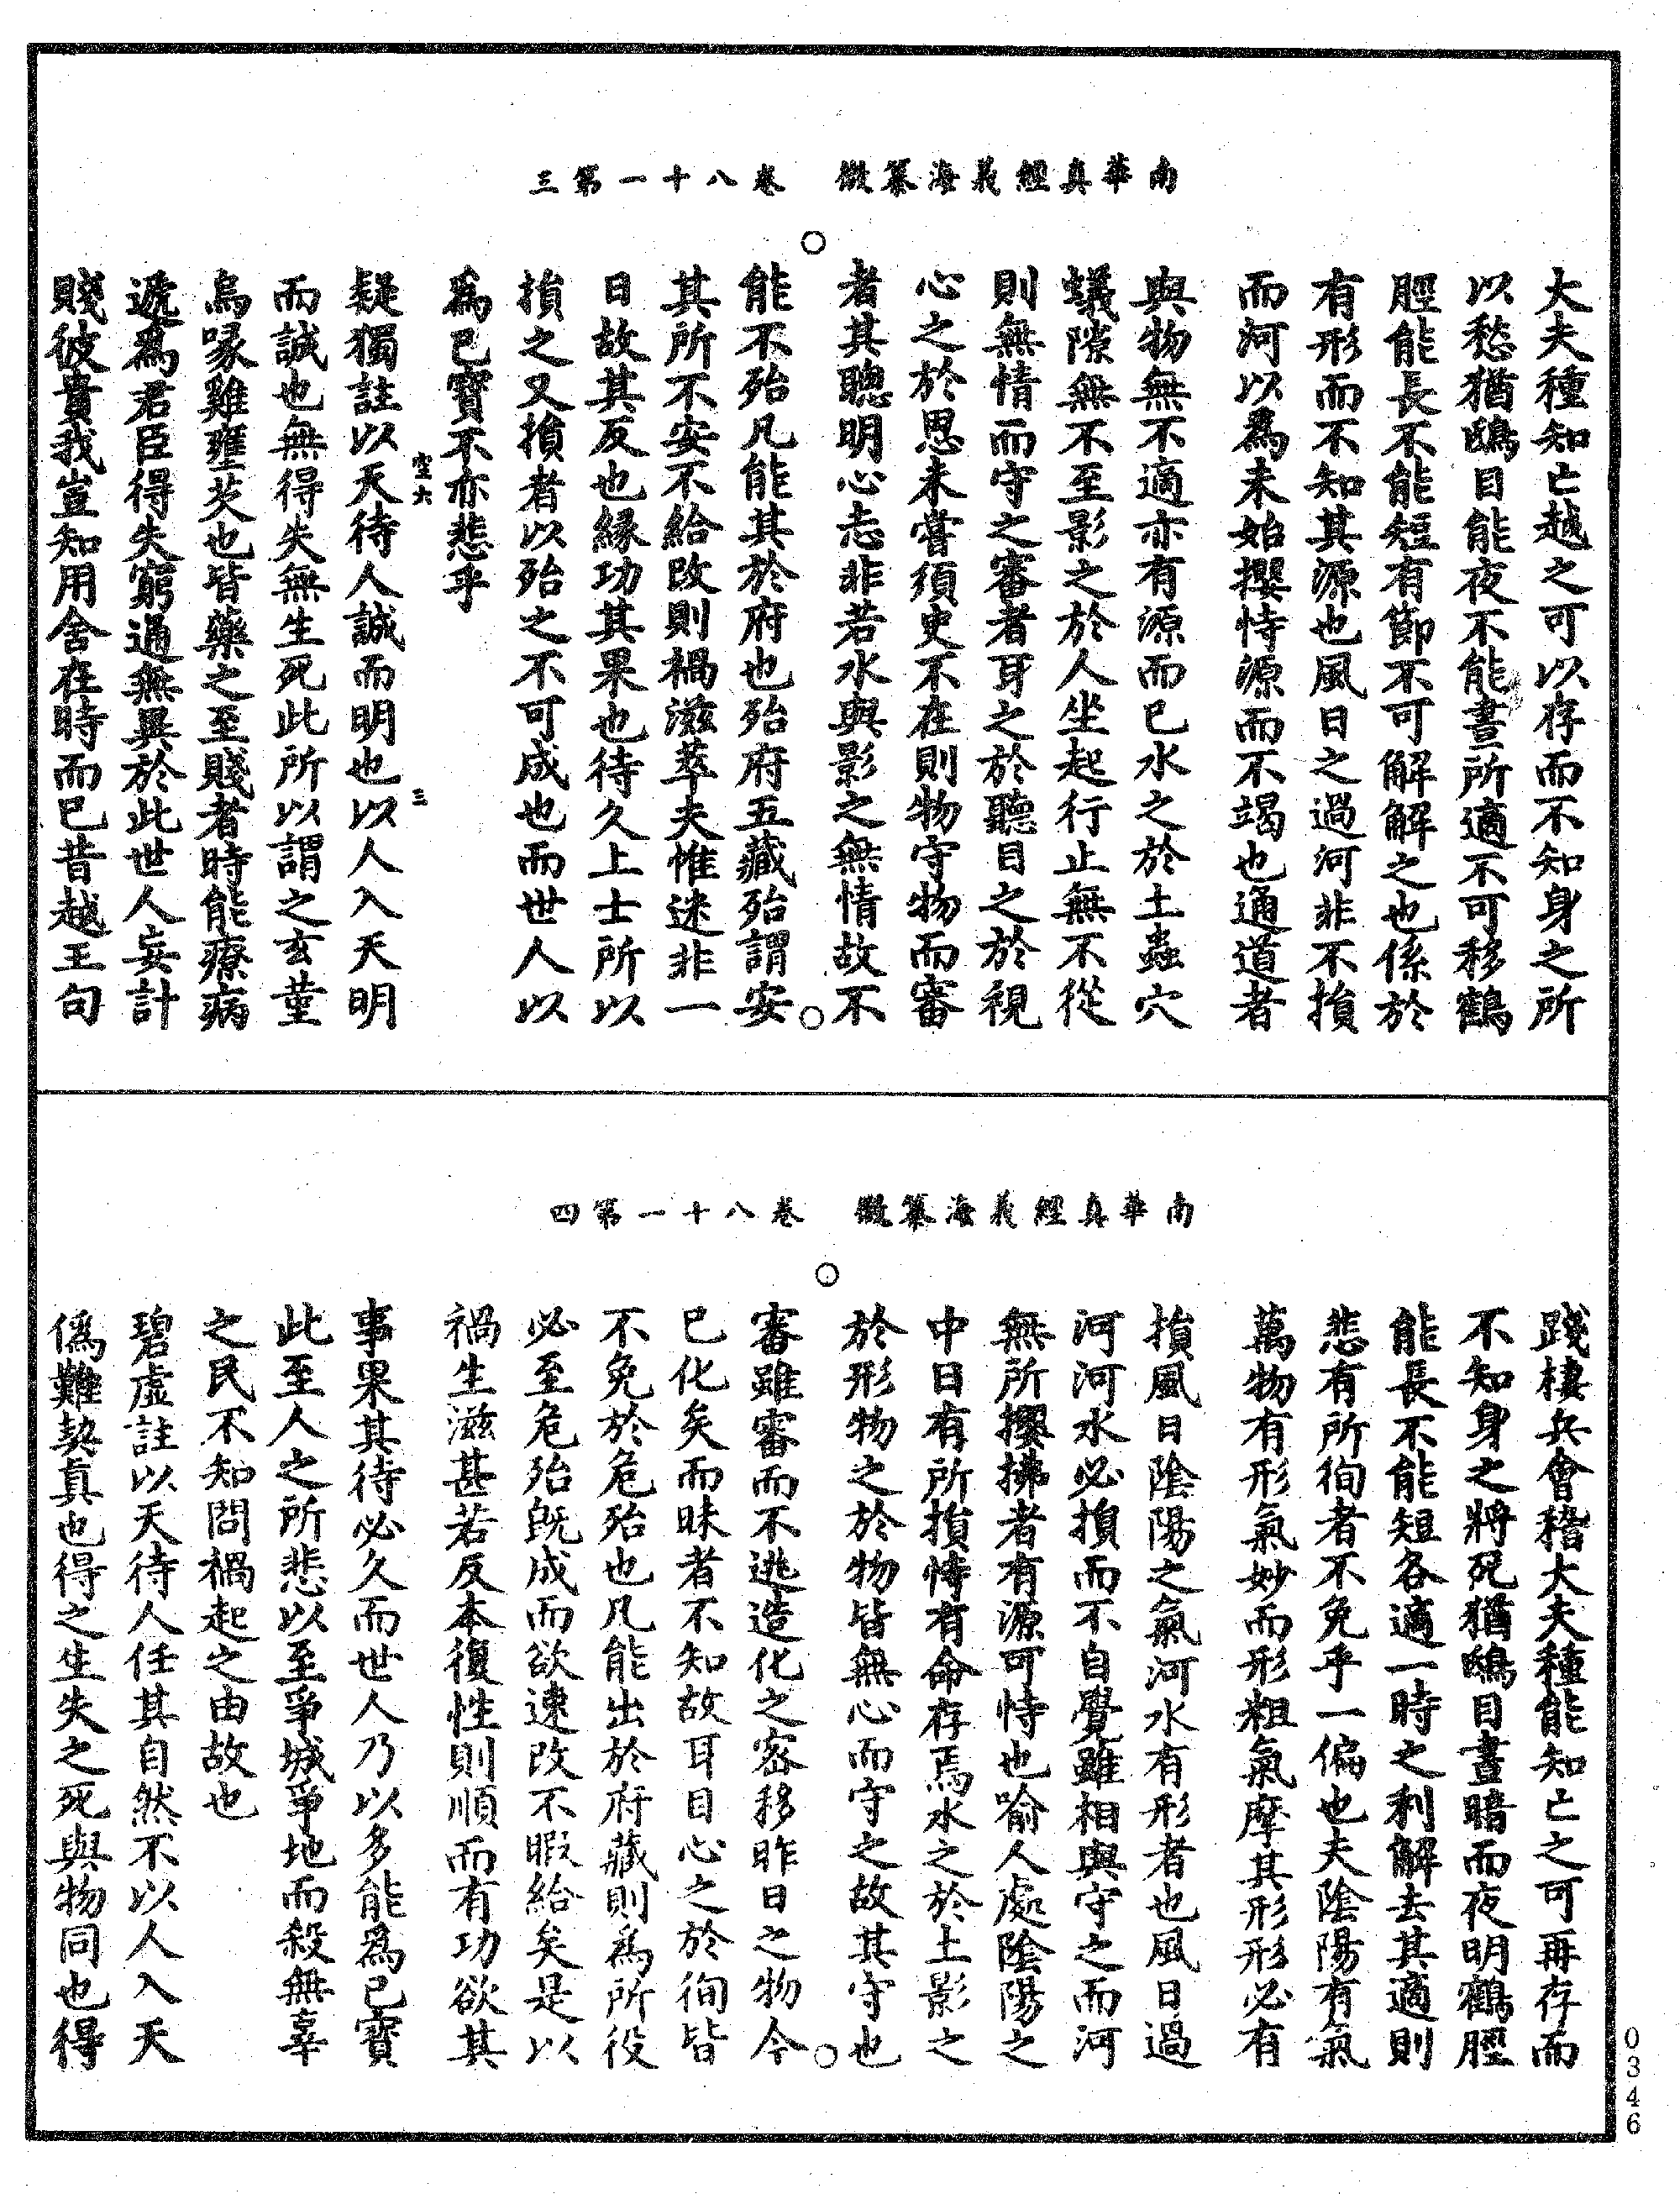 南華真經義海纂微　卷八十一第三
大夫種知亡越之可以存而不知身之所
以愁猶鴟目能夜不能晝所適不可移鶴
脛能長不能短有節不可解解之也係於
有形而不知其源也風日之過河非不損
而河以為未始攖恃源而不竭也通道者
與物無不適亦有源而已水之於土蟲穴
蟻隙無不至影之於人坐起行止無不從
則無情而守之審者耳之於聽目之於視
心之於思未嘗須臾不在則物守物而審
者其聰明心志非若水與影之無情故不
能不殆凡能其於府也殆府五藏殆謂安
其所不安不給改則禍滋萃夫惟迷非一
日故其反也緣功其果也待久上士所以
損之又損者以殆之不可成也而世人以
為已寶不亦悲乎
疑獨註以天待人誠而明也以人入天明
空六　三
而誠也無得失無生死此所以謂之玄堇
烏喙雞壅芡也皆藥之至賤者時能療病
遞為君臣得失窮通無異於此世人妄計
賤彼貴我豈知用舍在時而已昔越王句
南華真經義海纂微　卷八十一第四
踐棲兵會稽大夫種能知亡之可再存而
不知身之將死猶鴟目晝暗而夜明鶴脛
能長不能短各適一時之利解去其適則
悲有所徇者不免乎一偏也夫陰陽有氣
萬物有形氣妙而形粗氣摩其形形必有
損風日陰陽之氣河水有形者也風日過
河河水必損而不自覺雖相與守之而河
無所攖拂者有源可恃也喻人處陰陽之
中日有所損恃有命存焉水之於土影之
於形物之於物皆無心而守之故其守也
審雖審而不逃造化之密移昨日之物今
已化矣而昧者不知故耳目心之於徇皆
不免於危殆也凡能出於府藏則為所役
必至危殆既成而欲速改不暇給矣是以
禍生滋甚若反本復性則順而有功欲其
事果其待必久而世人乃以多能為已寶
此至人之所悲以至爭城爭地而殺無辜
之民不知問禍起之由故也
碧虛註以天待人任其自然不以人入天
偽難契真也得之生失之死與物同也得
0346